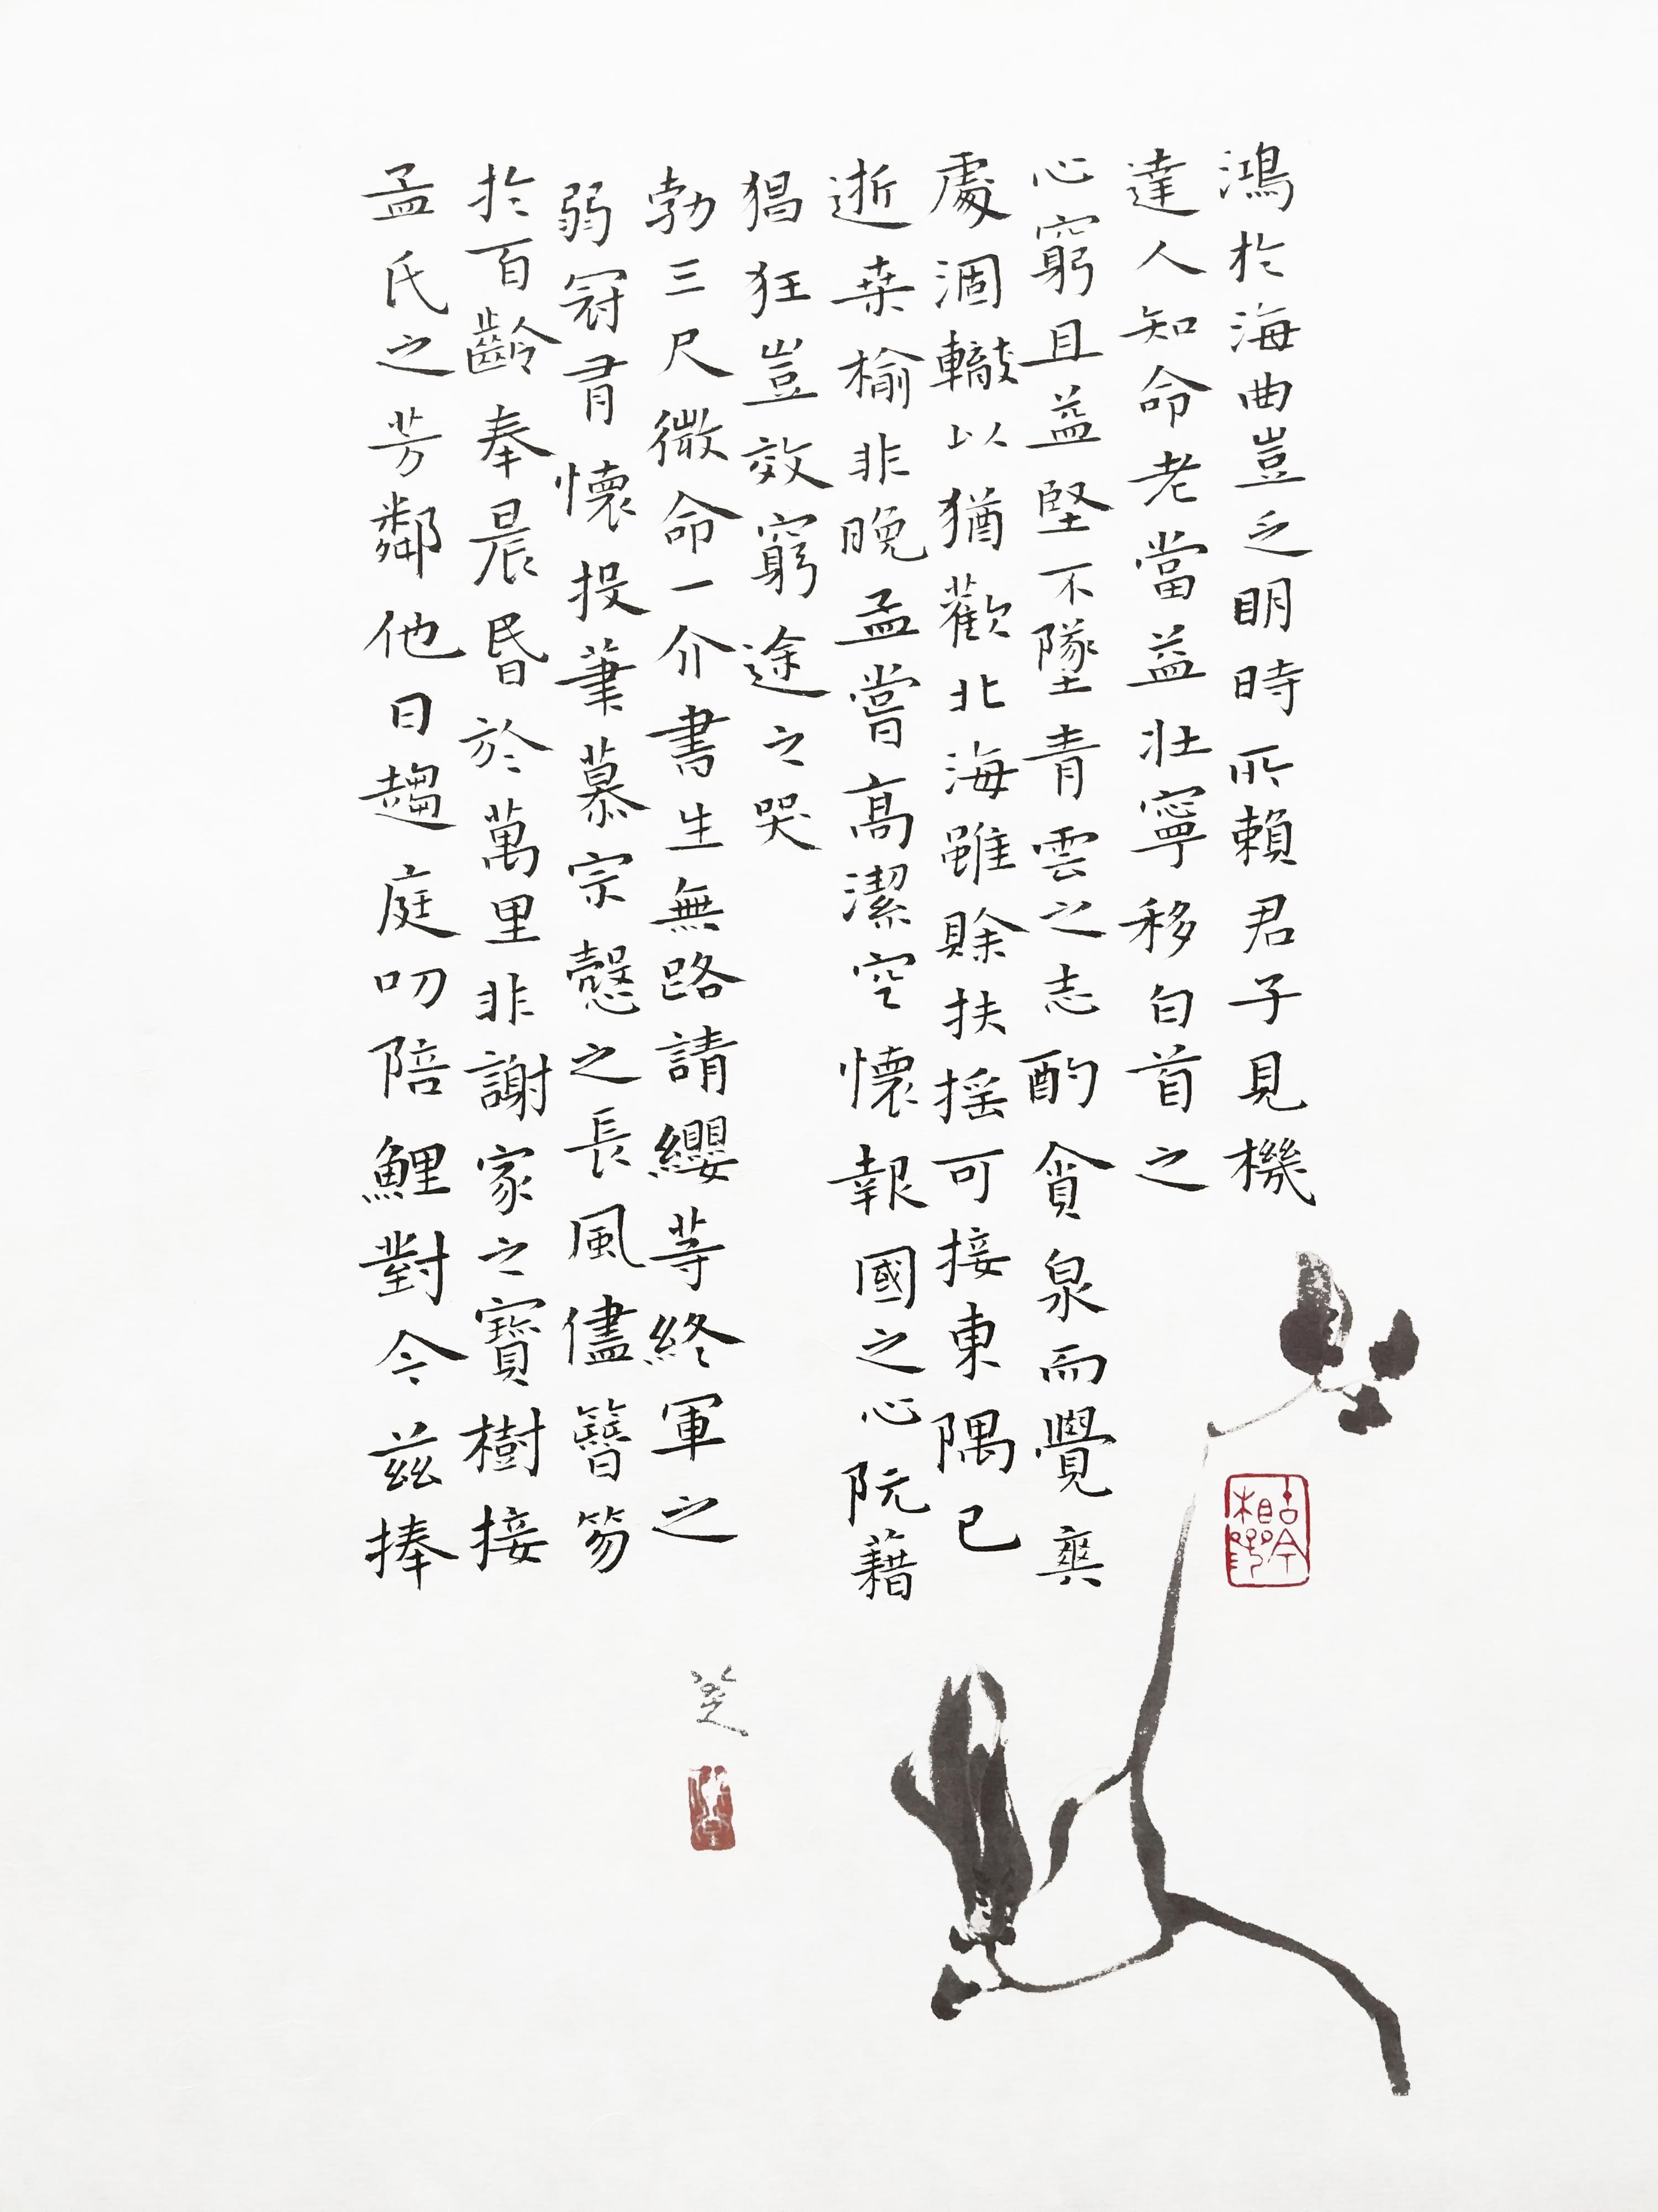 鴻於海曲豈乏眀時所賴君子見機
達人知命老當益壯寧移白首之
心窮且益堅不墜青雲之志酌貪泉而覺爽
處涸轍以猶歡北海雖賒扶摇可接東隅已
逝桒榆非晚孟嘗髙潔空懷報國之心阮藉
猖狂豈效窮途之哭
勃三尺微命一介書生無路請纓等終軍之
弱冠有懷投筆慕宗慤之長風儘簪笏
於百齡奉晨昬於萬里非謝家之寶樹接
孟氏之芳鄰他日趨庭叨陪鯉對今兹捧
古今相